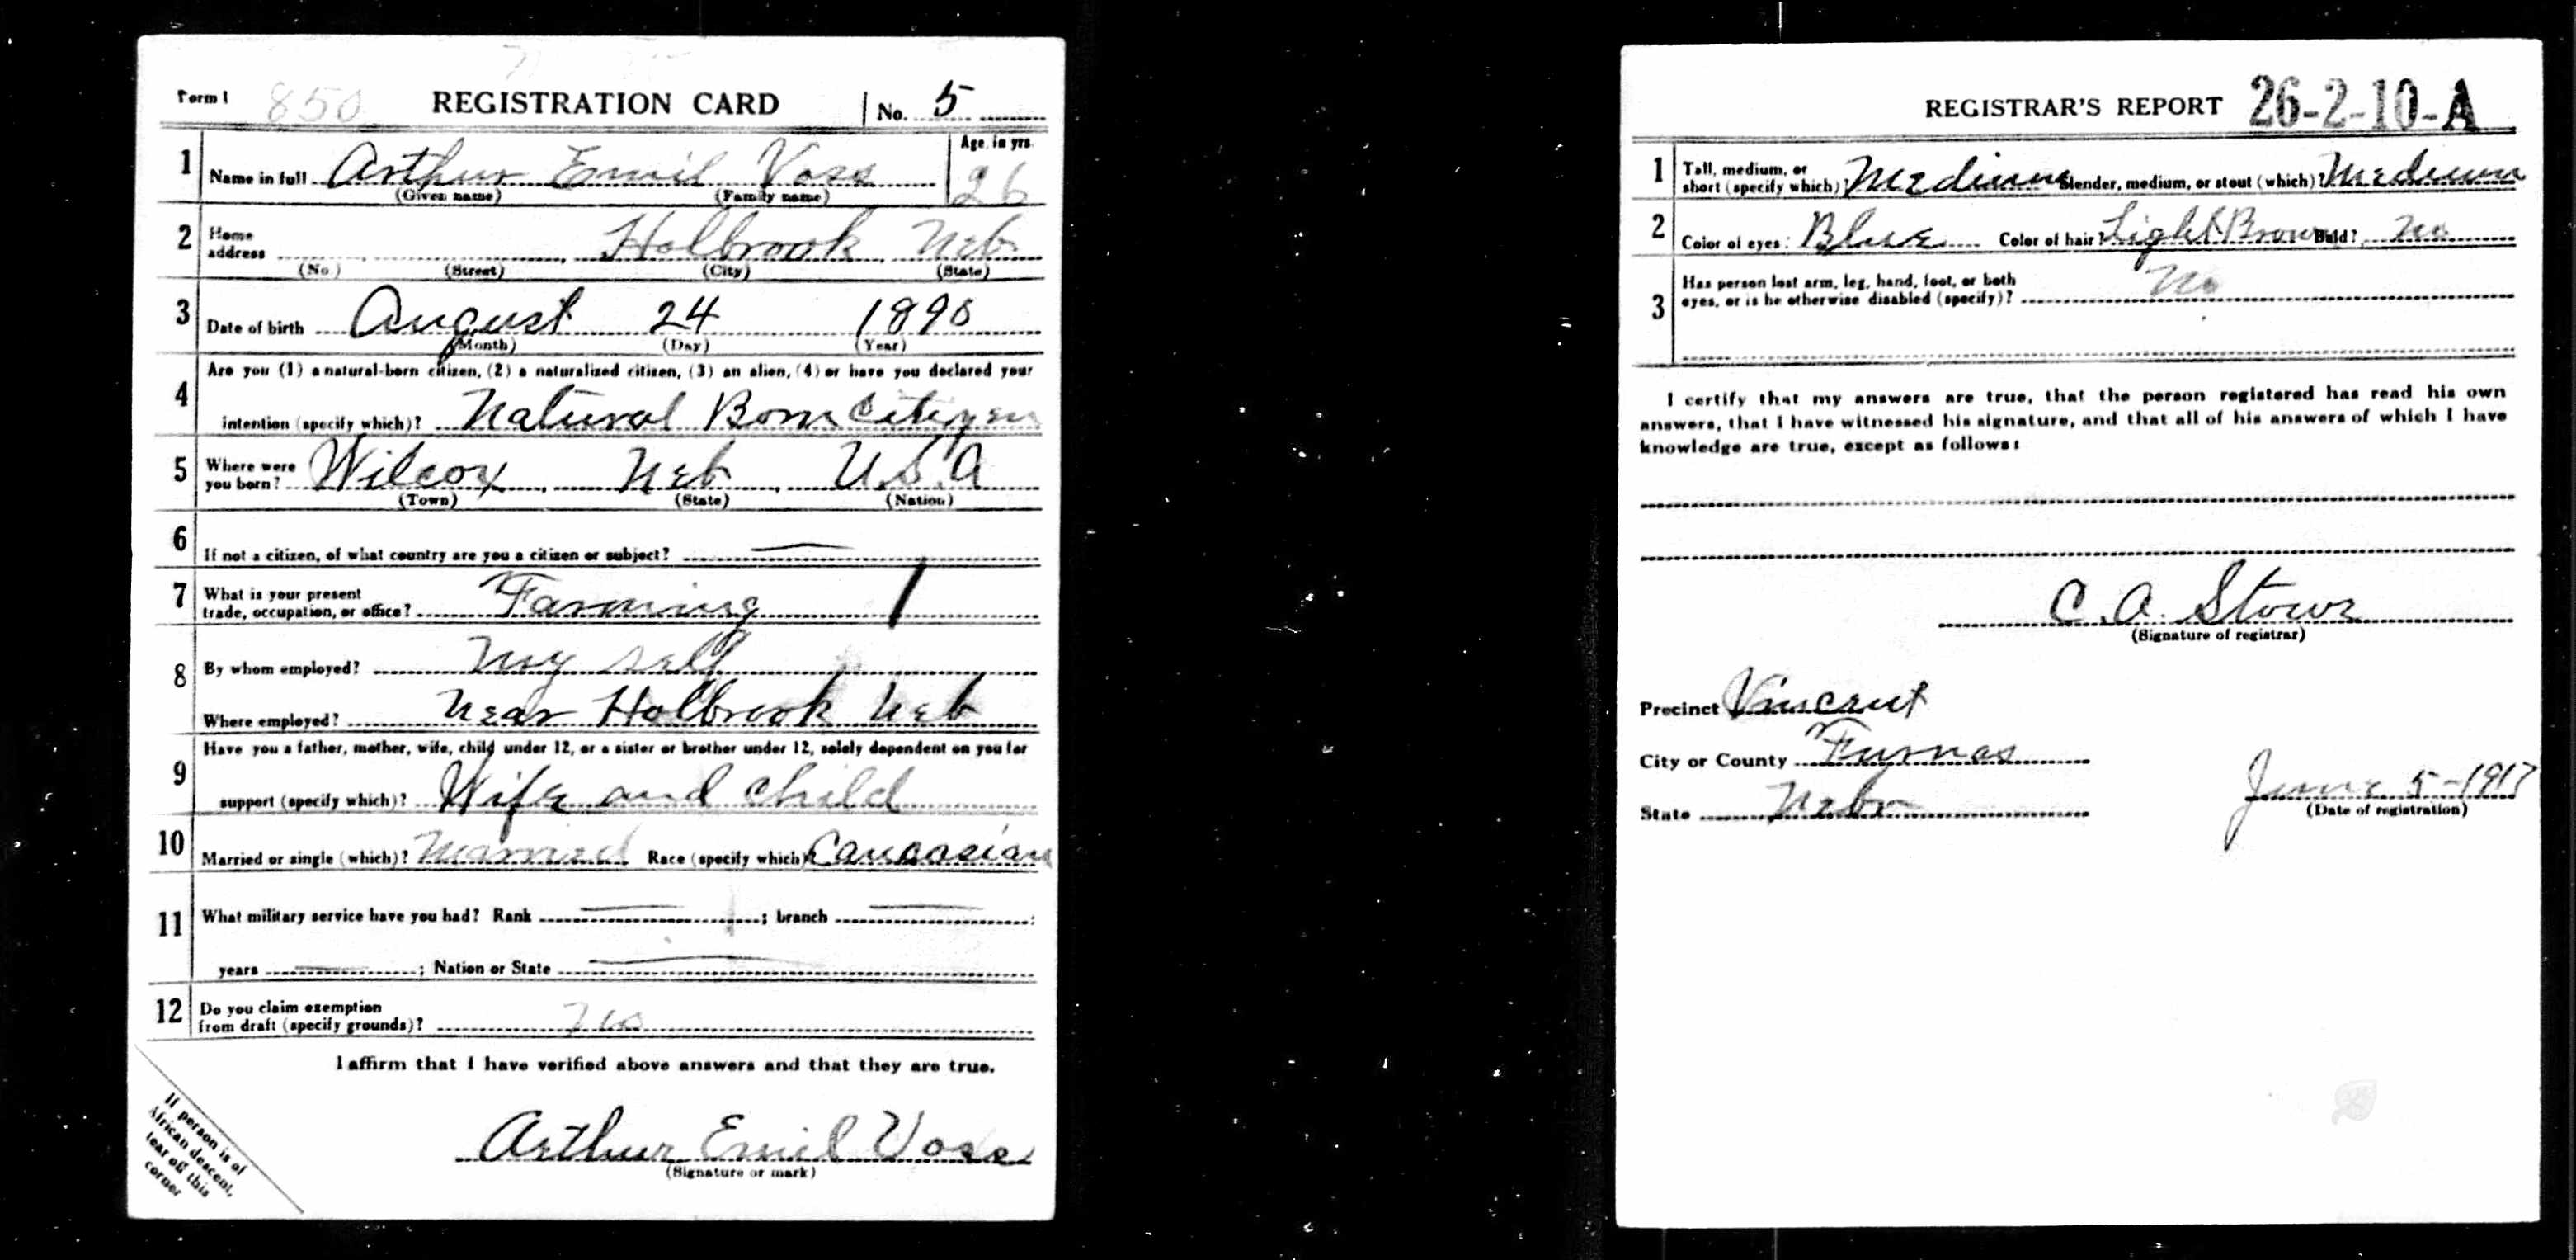 Form 1 850 REGISTRATION CARD No. 5
1 Name in full Arthur Emil Voss Age, in yrs. 26
(Given name) (Family name)
2 Home address Holbrook Neb
(No.) (Street) (City) (State)
3 Date of birth August 24 1890
(Month) (Day) (Year)
4 Are you (1) a natural-born citizen, (2) a naturalized citizen, (3) an alien, (4) or have you declared your
intention (specify which)? Natural Born Citizen
5 Where were you born? Wilcox, Neb, U.S.A
(Town) (State) (Nation)
6 If not a citizen, of what country are you a citizen or subject? —
7 What is your present trade, occupation, or office? Farming
8 By whom employed? My self
Where employed? Near Holbrook Neb
9 Have you a father, mother, wife, child under 12, or a sister or brother under 12, solely dependent on you for
support (specify which)? Wife and child
10 Married or single (which)? Married Race (specify which)? Caucasian
11 What military service have you had? Rank — ; branch — ;
years — ; Nation or State —
12 Do you claim exemption
from draft (specify grounds)? No
I affirm that I have verified above answers and that they are true.
Arthur Emil Voss
(Signature or mark)
If person is of
African descent,
tear off this
corner
REGISTRAR'S REPORT 26-2-10-A
1 Tall, medium, or short (specify which)? Medium Slender, medium, or stout (which)? Medium
2 Color of eyes? Blue Color of hair? Light Brown Bald? No
3 Has person lost arm, leg, hand, foot, or both
eyes, or is he otherwise disabled (specify)? No
I certify that my answers are true, that the person registered has read his own
answers, that I have witnessed his signature, and that all of his answers of which I have
knowledge are true, except as follows:
C. A. Stowe
(Signature of registrar)
Precinct Vincent
City or County Furnas
State Nebr
June 5-1917
(Date of registration)